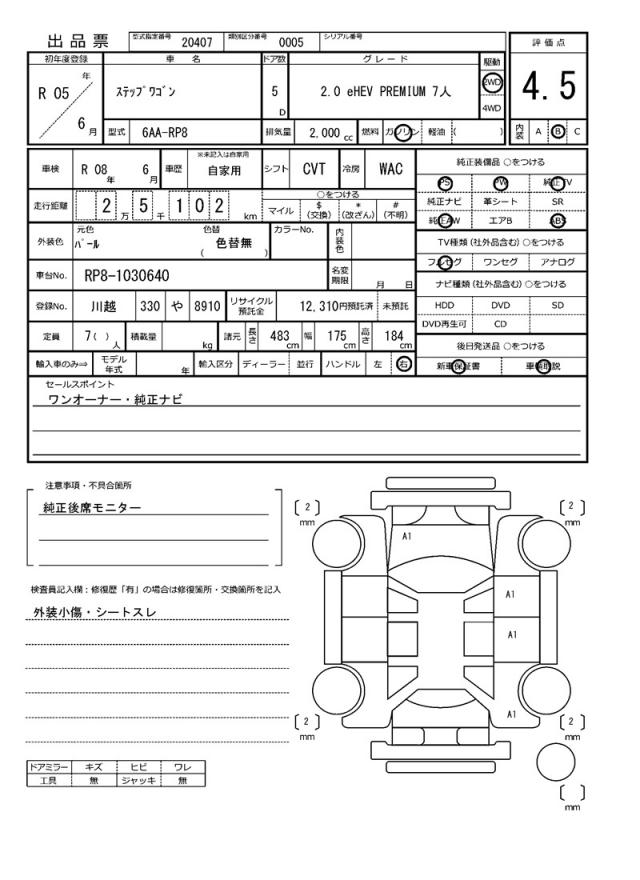 出品票 型式指定番号 20407 類別区分番号 0005 シリアル番号
評価点
4.5
内装 A B C
初年度登録 車名 ドア数 グレード 駆動
R 05 年 6 月
ステップワゴン 5 D 2.0 eHEV PREMIUM 7人 2WD 4WD
型式 6AA-RP8 排気量 2,000 cc 燃料 ガソリン 軽油 ( )
車検 R 08 年 6 月 車歴 ※未記入は自家用 自家用 シフト CVT 冷房 WAC
走行距離 2 万 5 千 1 0 2 km ○をつける
マイル $ (交換) * (改ざん) # (不明)
外装色 元色 パール 色替 ( 色替無 ) カラーNo. 内装色
車台No. RP8-1030640 名変期限 月 日
登録No. 川越 330 や 8910 リサイクル預託金 12,310円預託済 未預託
定員 7( ) 人 積載量 kg 諸元 長さ 483 cm 幅 175 cm 高さ 184 cm
輸入車のみ⇒ モデル年式 年 輸入区分 ディーラー 並行 ハンドル 左 右
純正装備品 ○をつける
PS PW 純正TV
純正ナビ 革シート SR
純正AW エアB ABS
TV種類 (社外品含む) ○をつける
フルセグ ワンセグ アナログ
ナビ種類 (社外品含む) ○をつける
HDD DVD SD
DVD再生可 CD
後日発送品 ○をつける
新車保証書 車輌取説
セールスポイント
ワンオーナー・純正ナビ
注意事項・不具合箇所
純正後席モニター
検査員記入欄：修復歴「有」の場合は修復箇所・交換箇所を記入
外装小傷・シートスレ
ドアミラー キズ ヒビ ワレ
工具 無 ジャッキ 無
[ 2 ] mm
[ 2 ] mm
A1
A1
A1
A1
[ 2 ] mm
[ 2 ] mm
[ ] mm